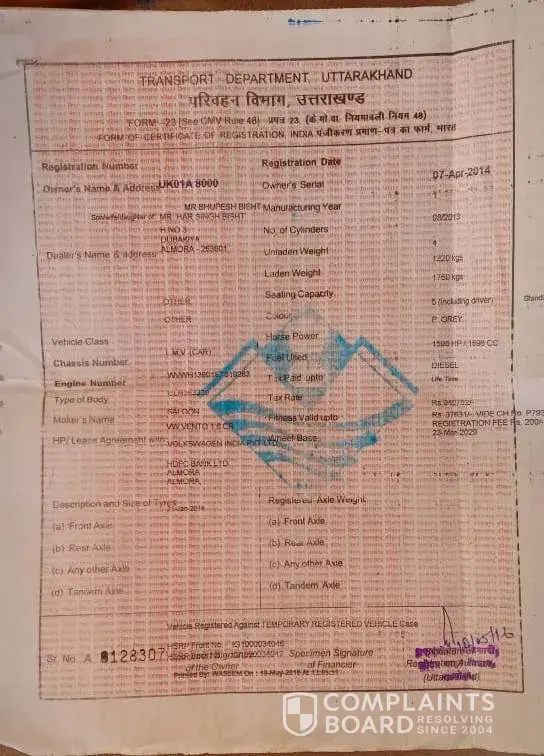 TRANSPORT DEPARTMENT, UTTARAKHAND
परिवहन विभाग, उत्तराखण्ड
FORM -23 [See CMV Rule 48) प्रपत्र 23, (के.मो.वा. नियमावली नियम 48)
FORM OF CERTIFICATE OF REGISTRATION, INDIA पंजीकरण प्रमाण-पत्र का फार्म, भारत
Registration Number
Registration Date
07-Apr-2014
Owner's Name & Address UK01A 8000
Owner's Serial
MR BHUPESH BISHT
Manufacturing Year
MR. HAR SINGH BISHT
08/2013
H.NO 3
No. of Cylinders
DUBAKIYA
4
Dealer's Name & address
ALMORA - 263601
Unladen Weight
1220 kgs
Laden Weight
1760 kgs
OTHER
Seating Capacity
5 (including driver)
Stand
OTHER
Colour
P. GREY
Vehicle Class
Horse Power
1598 HP / 1598 CC
L.M.V. (CAR)
Fuel Used
DIESEL
Chassis Number
Tax Paid upto
Life Time
Engine Number
Type of Body
Tax Rate
SALOON
Maker's Name
VW VENTO 1.6 CR
Fitness Valid upto
REGISTRATION FEE Rs. 200/-
23-Mar-2029
HP/ Lease Agreement with
VOLKSWAGEN INDIA PVT LTD
Wheel Base
HDFC BANK LTD
ALMORA
ALMORA,
Description and Size of Tyres
Registered Axle Weight
(a) Front Axle
(a) Front Axle
(b) Rear Axle
(b) Rear Axle
(c) Any other Axle
(c) Any other Axle
(d) Tandem Axle
(d) Tandem Axle
Vehicle Registered Against TEMPORARY REGISTERED VEHICLE Case
HSRP Front No.
Sr. No. A
Specimen Signature
of the Owner
of Financier
Registration Authority
(Uttarakhand)
Printed By: WASEEM On :
COMPLAINTS
BOARD
RESOLVING
SINCE 2004